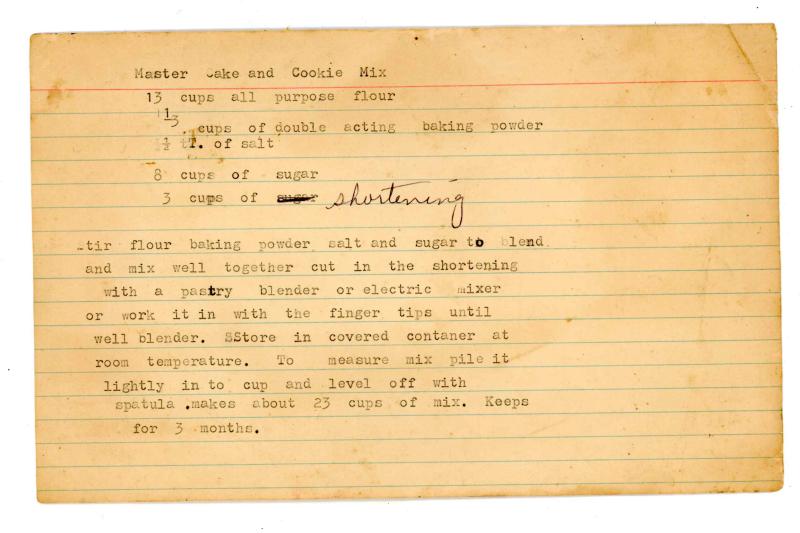 Master Cake and Cookie Mix
13 cups all purpose flour
1⅓ . cups of double acting baking powder
½ tT. of salt
8 cups of sugar
3 cups of sugar shortening
tir flour baking powder salt and sugar to blend
and mix well together cut in the shortening
with a pastry blender or electric mixer
or work it in with the finger tips until
well blender. SStore in covered contaner at
room temperature. To measure mix pile it
lightly in to cup and level off with
spatula .makes about 23 cups of mix. Keeps
for 3 months.